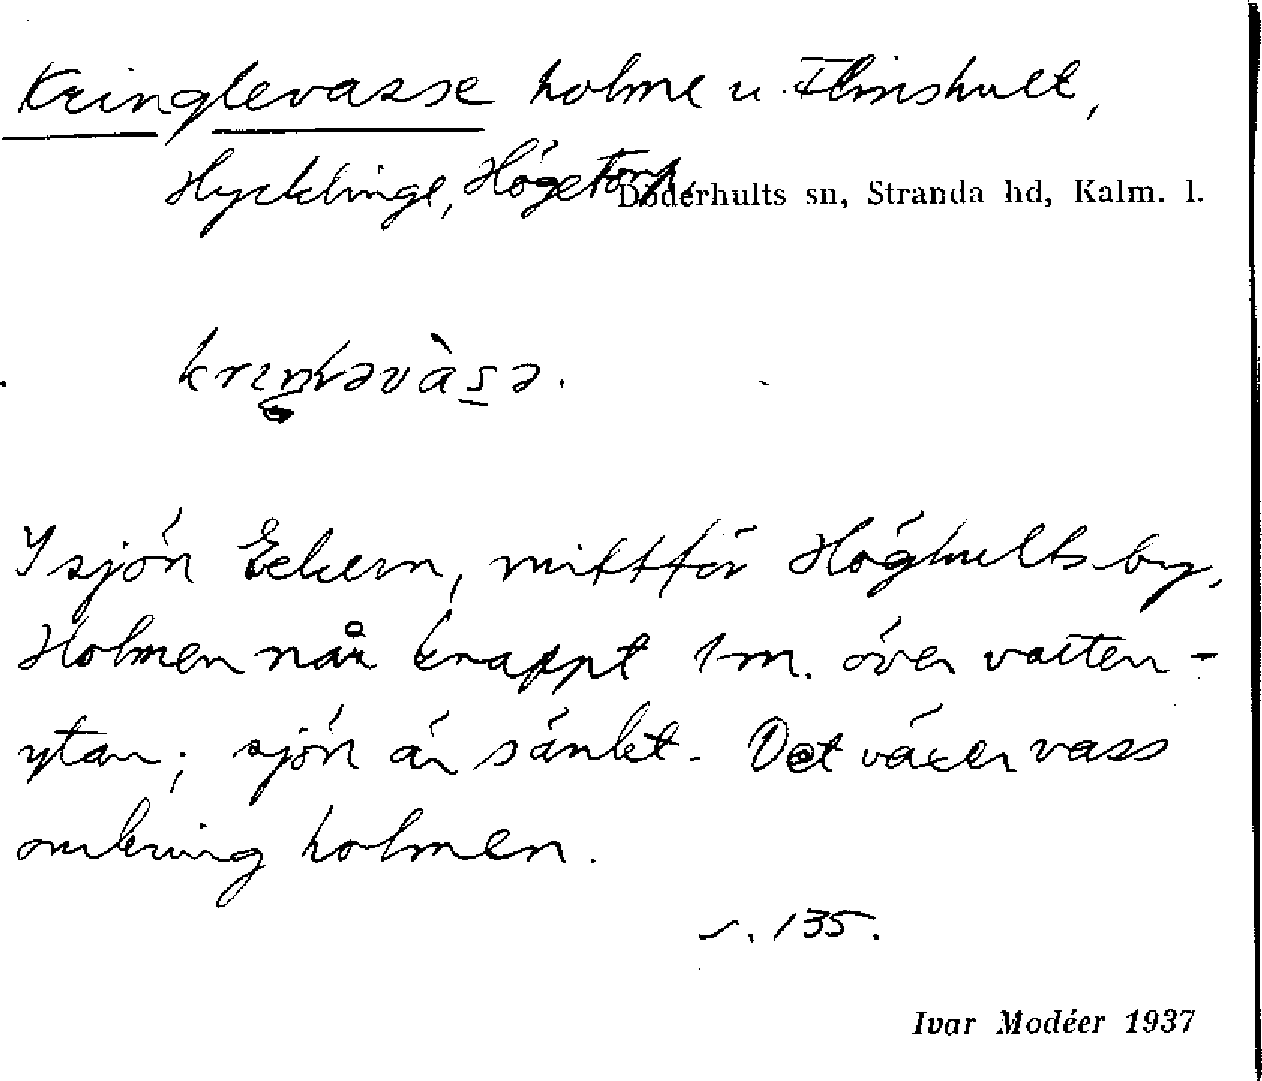 Kringlevasse holme u. Flinshult,
Hycklinge, Högetorp,
Döderhults sn, Stranda hd, Kalm. l.
I sjön Eckern, mittför Höghults by,
Holmen når knappt 1 m. över vatten-
ytan; sjön är sänkt. Det växer vass
omkring holmen.
s. 135.
Ivar Modéer 1937